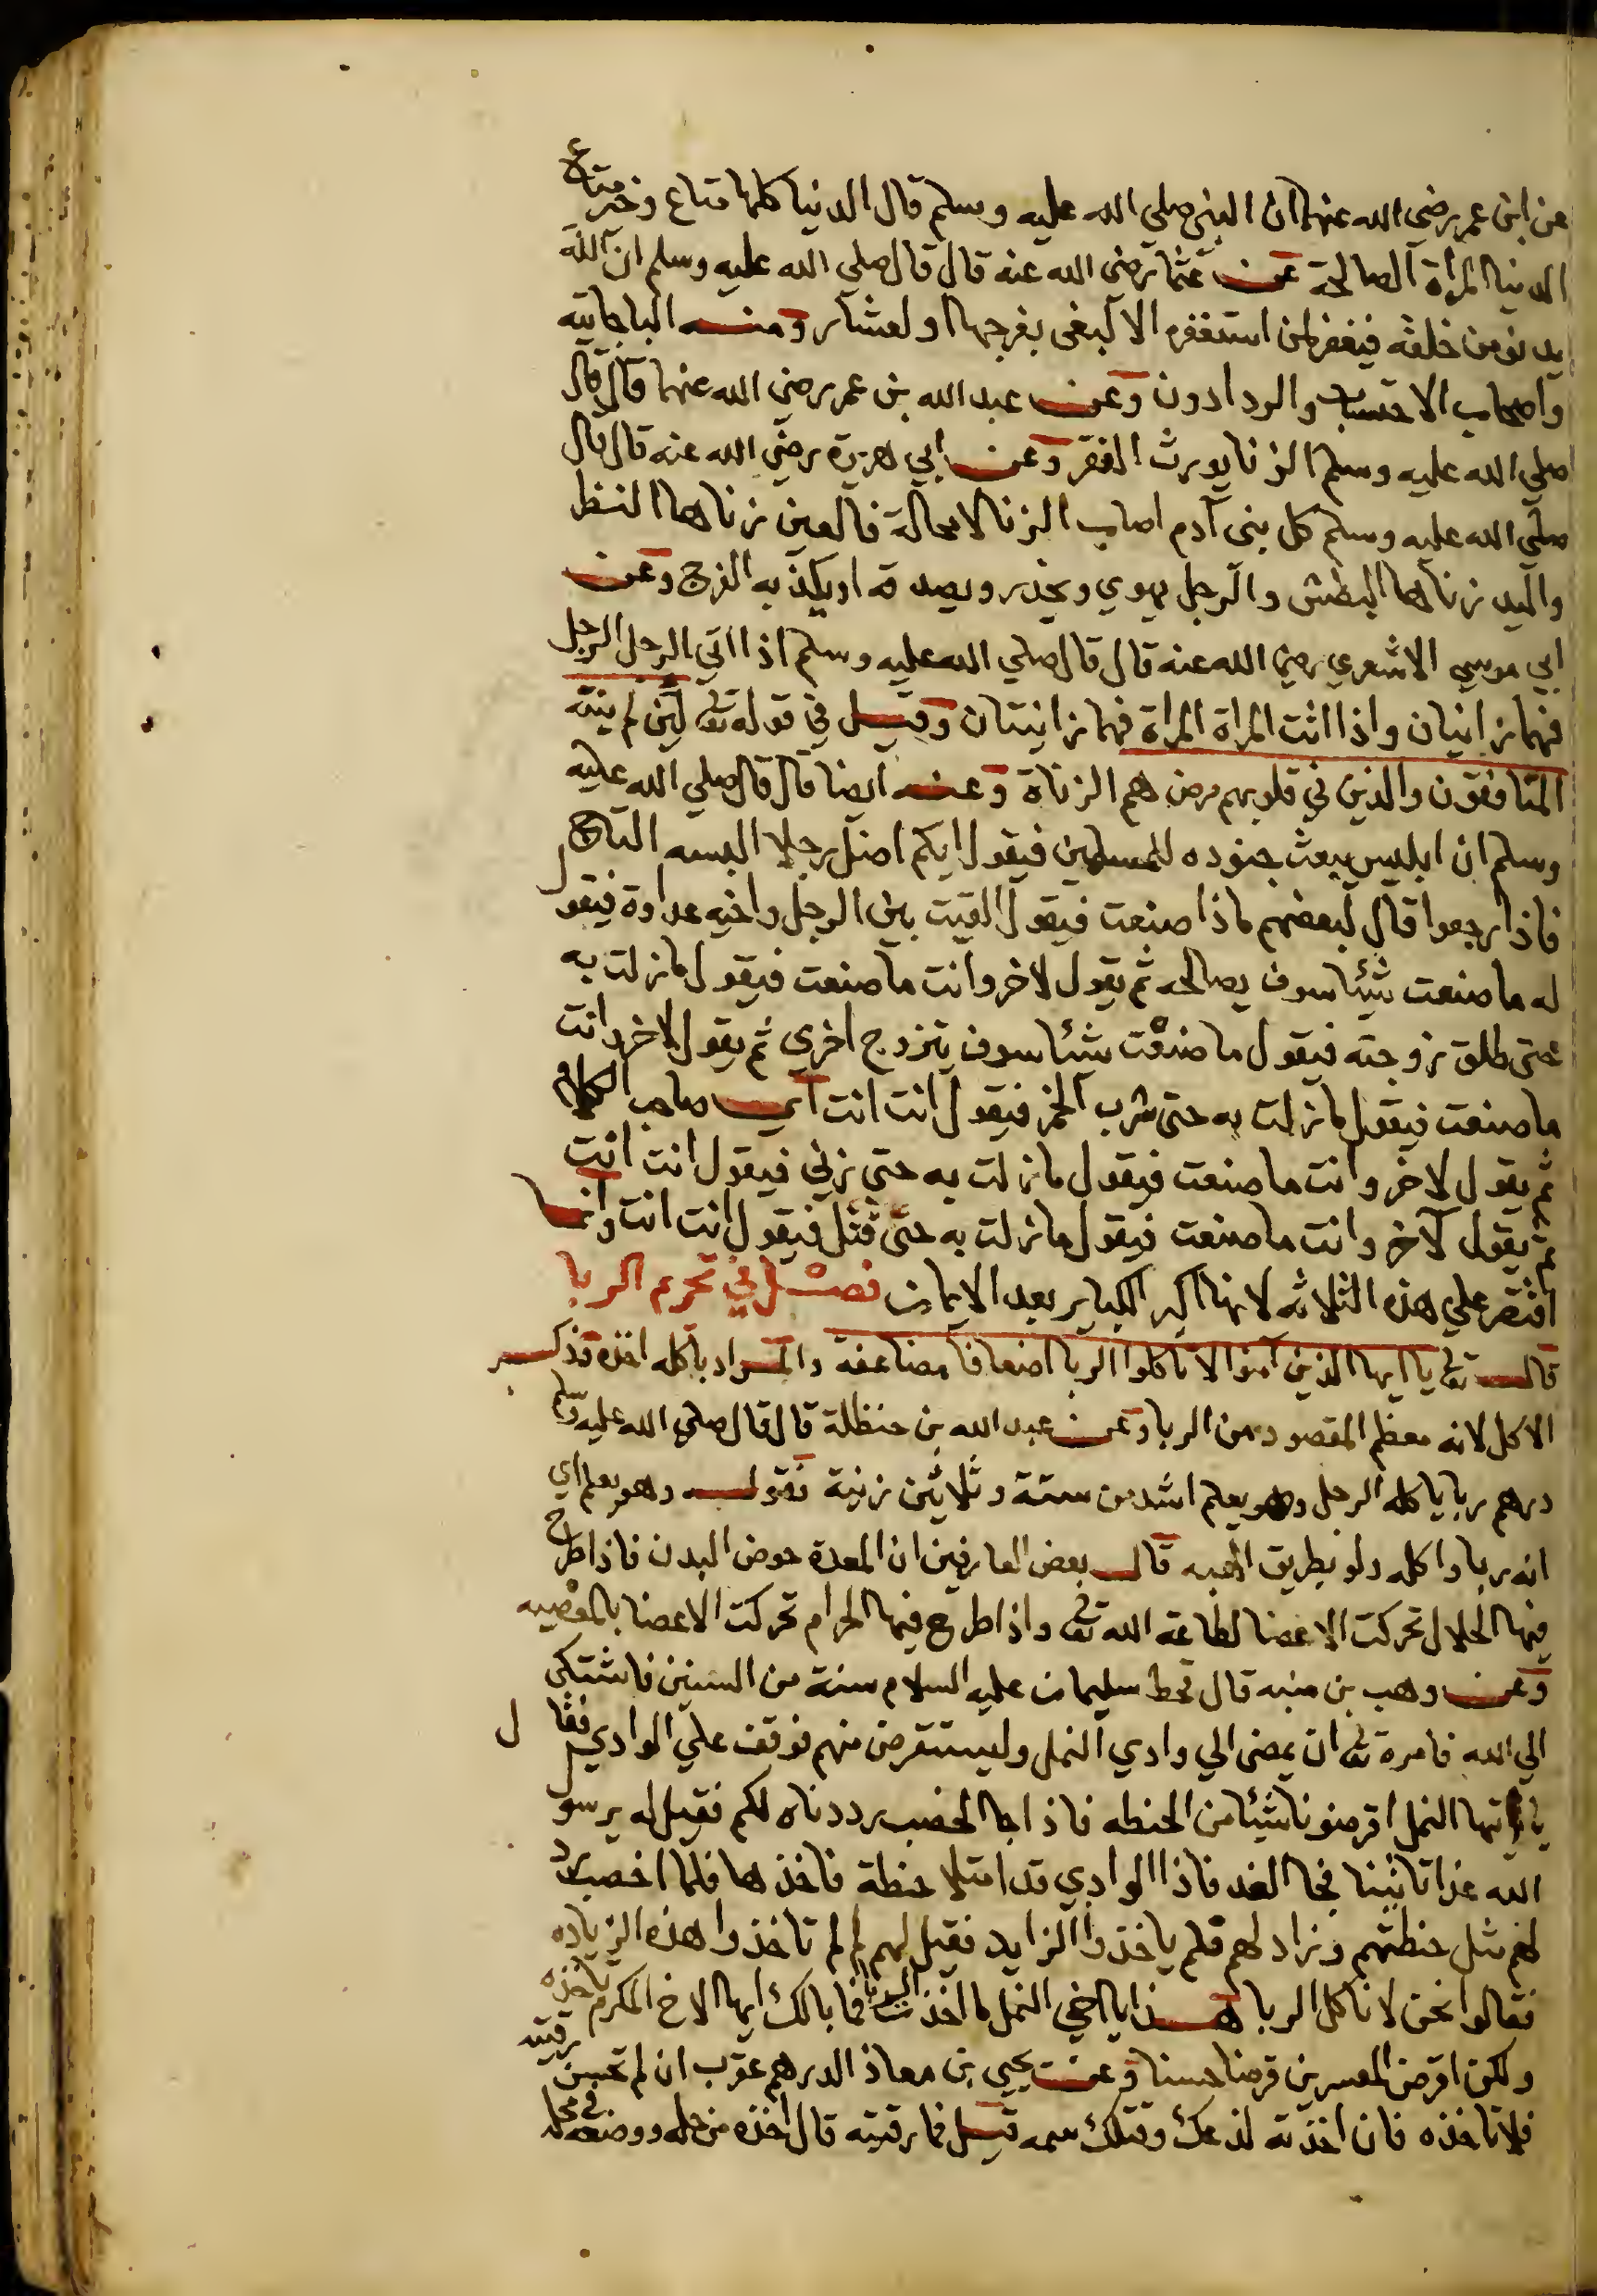 عن ابن عمر رضي الله عنهما ان النبي صلي الله عليه وسلم قال الدنيا كلها متاع وخير متاع
الدنيا المرأة الصالحة عن عثمان رضي الله عنه قال قال صلي الله عليه وسلم ان الله
يدنو من خلقه فيغفر لمن استغفره الا لبغى بفرجها او لعشار ومنه الباجاتيه
واصحاب الاحتساب والردادون وعن عبد الله بن عمر رضي الله عنهما قال قال
صلي الله عليه وسلم الزنا يورث الفقر وعن ابي هريرة رضي الله عنه قال قال
صلي الله عليه وسلم كل بني آدم اصاب الزنا لا محالة فالعين زناها النظر
واليد زناها البطش والرجل يهوي ويحذر ويصدقه او يكذبه الفرج وعن
ابي موسي الاشعري رضي الله عنه قال قال صلي الله عليه وسلم اذا اتي الرجل الرجل
فهما زانيان واذا اتت المراة المراة فهما زانيتان وقيل في قوله تعا لئن لم ينته
المنافقون والذين في قلوبهم مرض هم الزناة وعنه ايضا قال قال صلي الله عليه
وسلم ان ابليس يبعث جنوده للمسلمين فيقول ايكم اضل رجلا البسه التاج
فاذا رجعوا قال لبعضهم ماذا صنعت فيقول القيت بين الرجل واخيه عداوة فيقول
له ما صنعت شيئا سوف يصالحه ثم يقول لاخر وانت ما صنعت فيقول ما زلت به
حتى طلق زوجته فيقول ما صنعت شيئا سوف يتزوج اخري ثم يقول لاخر وانت
ما صنعت فيقول ما زلت به حتى شرب الخمر فيقول انت انت اي صاحب الكلام
ثم يقول لاخر وانت ما صنعت فيقول ما زلت به حتي زني فيقول انت انت
ثم يقول لآخر وانت ما صنعت فيقول ما زلت به حتى قتل فيقول انت انت وانما
اقتصر علي هذه الثلاثه لانها اكبر الكباير بعد الايمان فصل في تحريم الربا
قال تعا يا ايها الذين آمنوا لا تاكلوا الربا اضعافا مضاعفة والمراد باكله اخذه فذكر
الاكل لانه معظم المقصود من الربا وعن عبد الله بن حنظلة قال قال صلي الله عليه وسلم
درهم ربا ياكله الرجل وهو يعلم اشد من ستة وثلاثين زنية فقوله وهو يعلم اي
انه ربا واكله ولو بطريق الهبه قال بعض العارفين ان المعدة حوض البدن فاذا طرح
فيها الحلال تحركت الاعضا لطاعة الله تعا واذا طرح فيها الحرام تحركت الاعضا بالمعصيه
وعن وهب بن منبه قال قحط سليمان عليه السلام سنة من السنين فاشتكى
الي الله فامره تعا ان يمضى الي وادي النمل وليستقرض منهم فوقف علي الوادي فقال
يا ايتها النمل اقرضونا شيئا من الحنطه فاذا جا الخصب رددناه لكم فقيل له يرسول
الله غدا تاتينا فجا الغد فاذا الوادي قد امتلا حنطة فاخذها فلما اخصب رد
لهم مثل حنطتهم وزاد لهم فلم ياخذوا الزايد فقيل لهم لم لم تاخذوا هذه الزياده
فقالوا نحن لا ناكل الربا هذا يا اخي النمل ما اخذت الربا فما بالك ايها الاخ المكرم تاخذه
ولكن اقرض المعسرين قرضا حسنا وعن يحيي بن معاذ الدرهم عقرب ان لم تحسن رقيته
فلا تاخذه فان اخذته لذعك وقتلك سمه قيل فما رقيته قال اخذه من حله ووضعه في محله